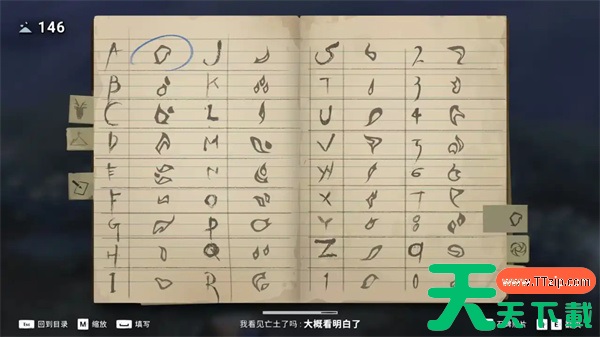 146
A J S 2
B K T 3
C L U 4
D M V 5
E N W 6
F O X 7
G P Y 8
H Q Z 9
I R 1 0
www.TTzip.com
天天下載
回到目录 M 缩放 填写
我看见亡土了吗：大概看明白了